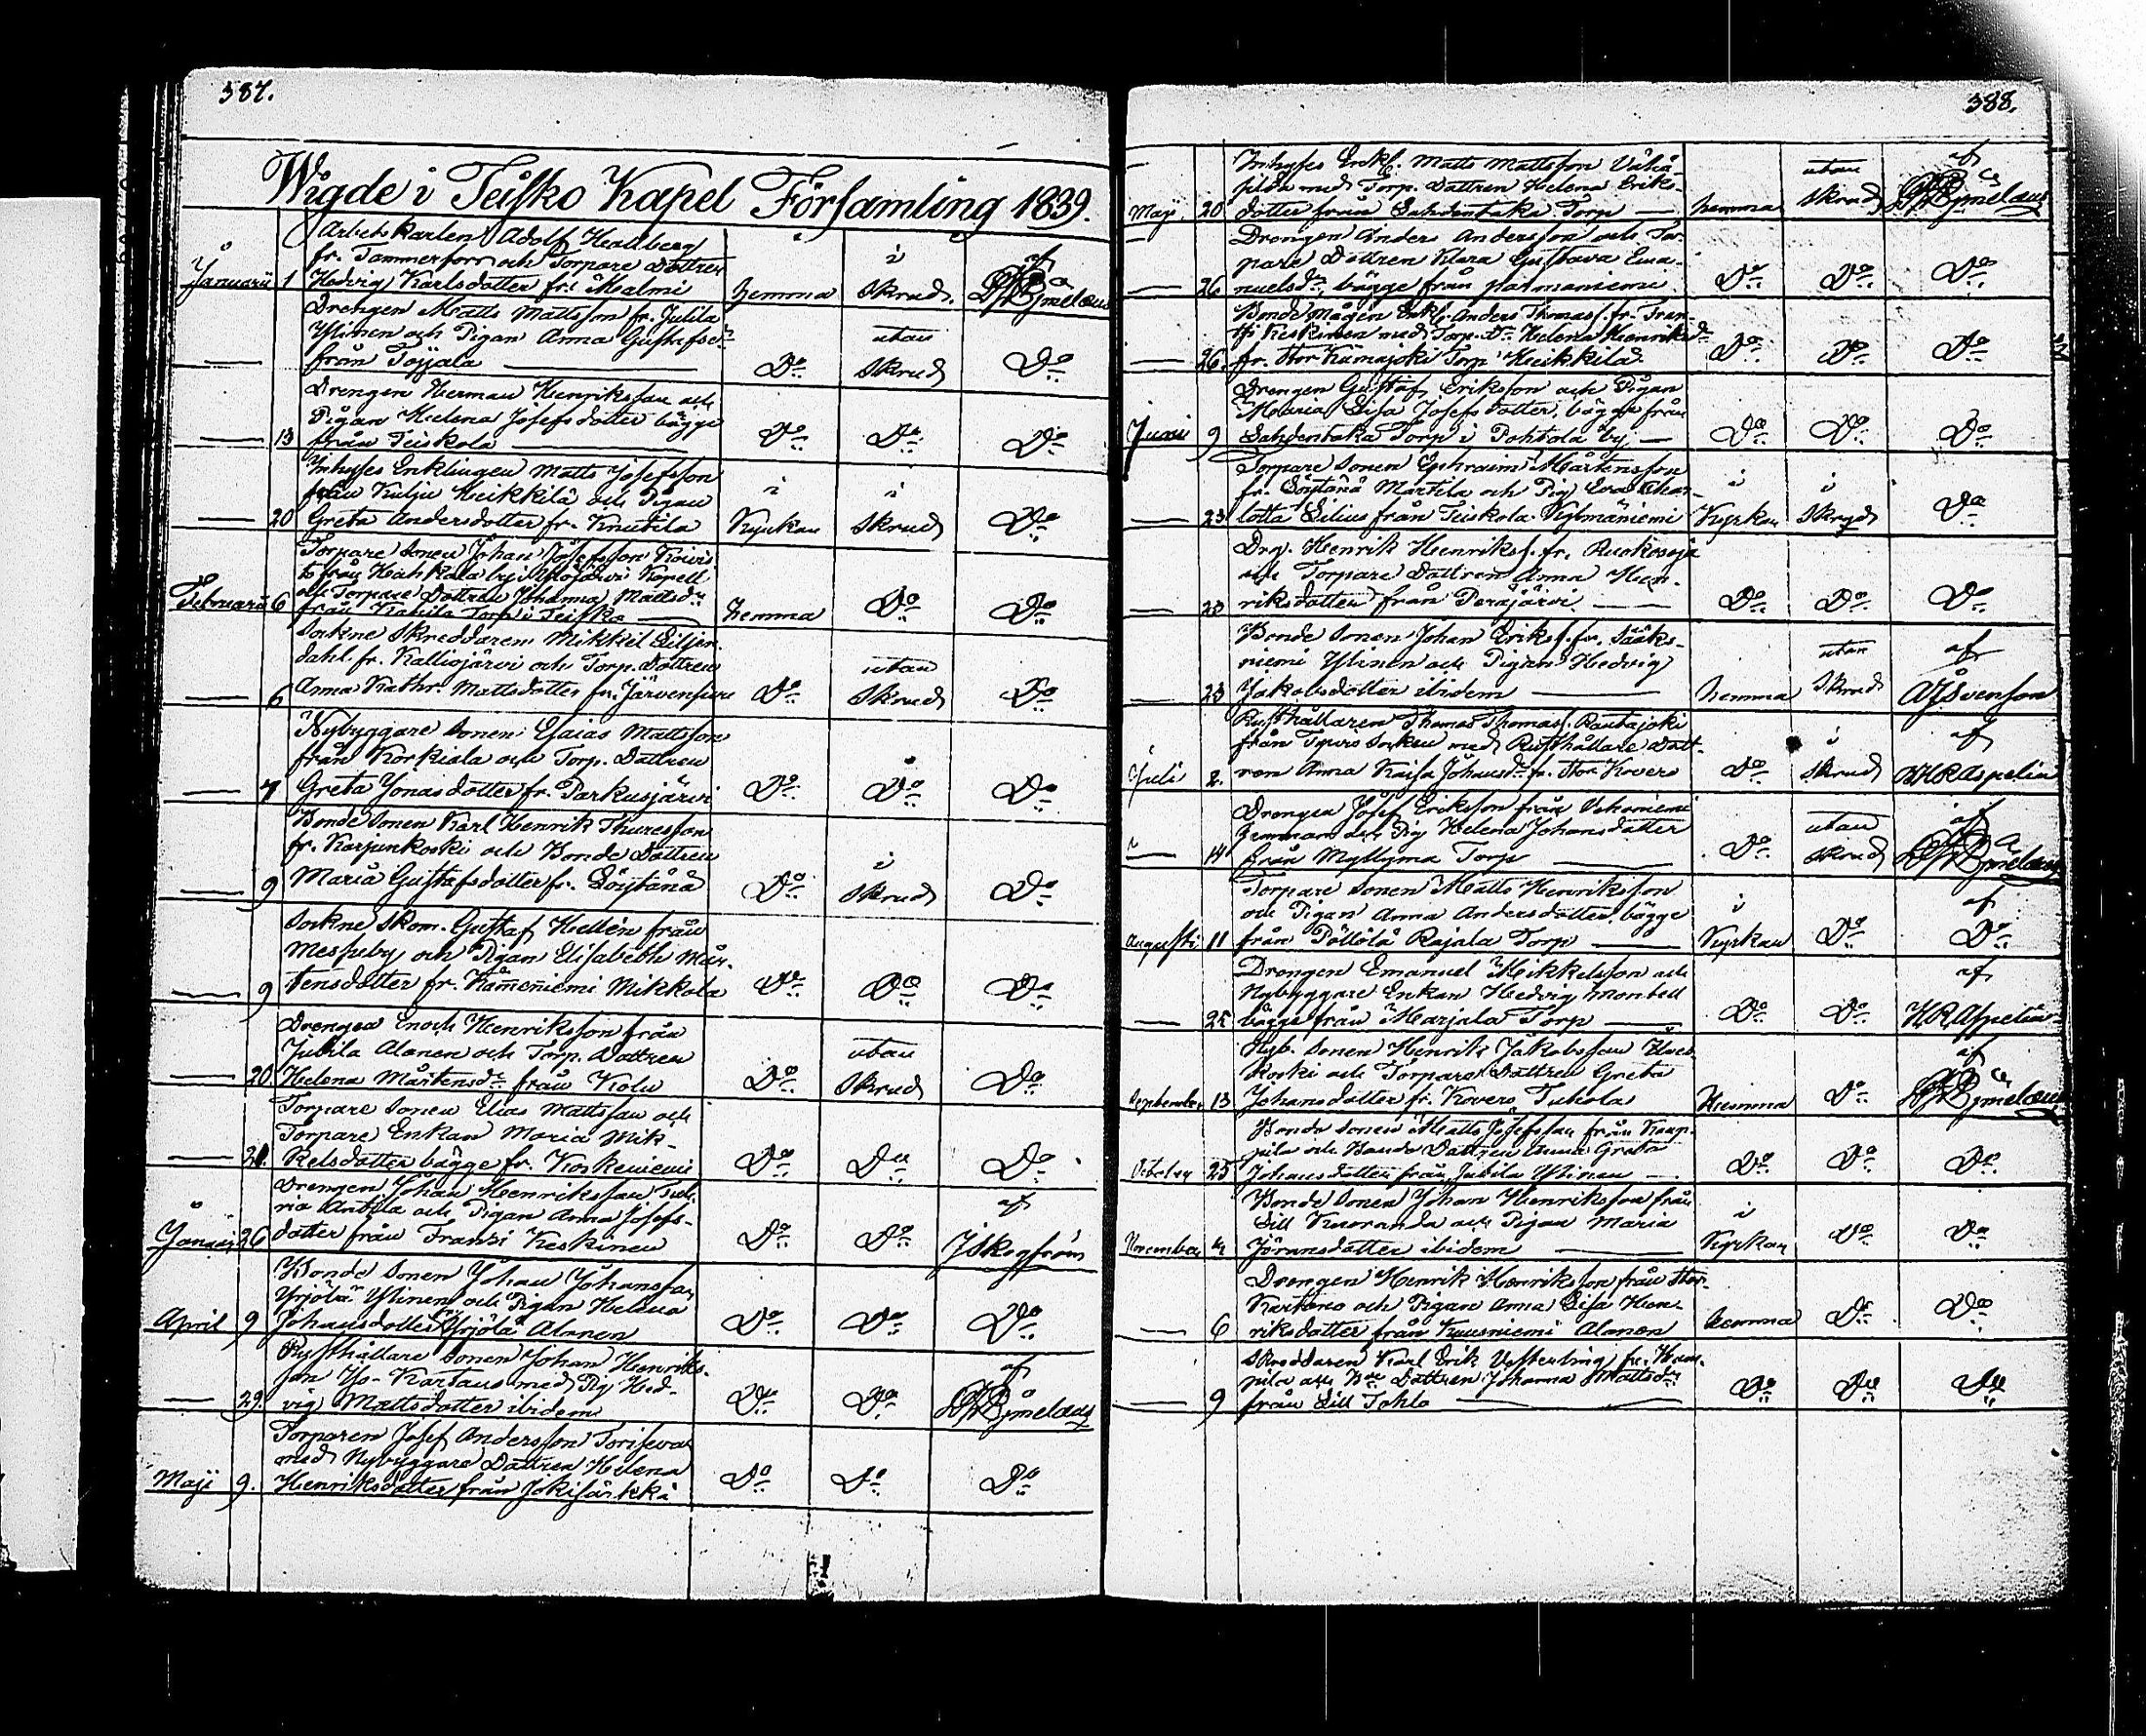 387.
Wigde i Teisko Kapel Församling 1839.
Arbets Karlen Adolf Hallberg
fr. Tammerfors och Torpare Dottren
Januarii 1 Hedvig Karlsdotter fr. Malmi hemma i Skrud. af
Drengen Matts Mattsson fr. Jutila
Ylinen och Pigan Anna Gustafsdr utan
— från Toijala — Do Skrud Do
Drengen Herman Henriksson och
Pigan Helena Josefsdotter bägge
— 13 från Teiskola — Do Do Do
Inhyses Enklingen Matts Josefsson
från Kulju Heikkilä och Pigan i i
— 20 Greta Andersdotter fr. Knutila Kyrkan Skrud Do
Torpare Sonen Johan Josefsson Koivis
to från by i Kapell
och Torpare Dottren Johanna Mattsdr
Februarii 6 från Torp i Teisko — hemma Do Do
Sokne Skreddaren Mikkel Liljen
dahl. fr. Kalliojärvi och Torp. Dottren utan
— 6 Anna Kathr. Mattsdotter fr. Järvenpää Do Skrud Do
Nybyggare Sonen Esaias Mattsson
från Korkiala och Torp. Dottren
— 7 Greta Jonasdotter fr. Parkusjärvi Do Do Do
Bonde Sonen Karl Henrik Thuresson
fr. Karjunkoski och Bonde Dottren i
— 9 Maria Gustafsdotter fr. Löytänä Do Skrud Do
Sokne Skom. Gustaf Hellén från
Messuby och Pigan Elisabeth Mår-
— 9 tensdotter fr. Kämeniemi Mikkola Do Do Do
Drengen Enoch Henriksson från
Jutila Alanen och Torp. Dottren utan
— 20 Helena Mårtensdr från Kolu Do Skrud Do
Torpare Sonen Elias Mattsson och
Torpare Enkan Maria Mik-
— 21. kelsdotter bägge fr. Koskeniemi Do Do Do
Drengen Johan Henriksson
Anttila och Pigan Anna Josefs- af
Januarii 26 dotter från Franzi Keskinen Do Do J Skogström
Bonde Sonen Johan Johansson
Yrjölä Ylinen och Pigan Helena
April 9 Johansdotter Yrjölä Alanen Do Do Do
Rusthållare Sonen Johan Henriks-
son Yo-Kartano med Pig. Hed- af
— 29. vig Mattsdotter ibidem Do Do
Torparen Josef Andersson Toriseva
med Nybyggare Dottren Helena
Maji 9. Henriksdotter från Jokisärkkä Do Do Do
388.
Inhyses Enkl. Matts Mattsson Vähä- af
med Torp. Dottren Helena Eriks- utan
Maji 20 dotter från Lahdentaka Torp — hemma Skrud
Drengen Anders Andersson och Tor-
pare Dottren Klara Gustava Ema-
— 26 nuelsdr, bägge från Parmaniemi Do Do Do
Bonde Mågen Enkl. Anders Thomass. fr. Fran-
tsi Keskinen med Torp. Dr Helena Henriksdr
— 26. fr. Stor Kämajoki Torp Heikkilä Do Do Do
Drengen Gustaf Eriksson och Pigan
Maria Lisa Josefsdotter, bägge från
Junii 9 Lahdentaka Torp i Pohtola by — Do Do Do
Torpare Sonen Ephraim Mårtensson
fr. Löytänä Märtilä och Pig. Eva Char- i i
— 23 lotta Lilius från Teiskola Kyrkan Skrud Do
Drg. Henrik Henrikss. fr. Ruokosoja
och Torpare Dottren Anna Hen-
— 23 riksdotter från Peräjärvi — Do Do Do
Bonde Sonen Johan Erikss. fr. Sääks-
niemi Ylinen och Pigan Hedvig utan af
— 23 Jakobsdotter ibidem — hemma Skrud A J Svensson
Rusthållaren Thomas Thomass. Rautajoki
från Socken med Rusthållare Dott- i af
Juli 2. ren Anna Kaisa Johansdr fr. Stor Kovero Do Skrud H R Aspelin
Drengen Josef Eriksson från
och Pig. Helena Johansdotter utan af
— 14 från Myllymä Torp — Do Skrud
Torpare Sonen Matts Henriksson
och Pigan Anna Andersdotter bägge i af
Augusti 11 från Pöllölä Rajala Torp — Kyrkan Do Do
Drengen Emanuel Mikkelsson och
Nybyggare Enkan Hedvig Montell af
— 25 bägge från Marjala Torp — Do Do H R Aspelin
Nyb. Sonen Henrik Jakobsson
koski och Torpare Dottren Greta af
September 13 Johansdotter fr. Kovero Tuhola Hemma Do
Bonde Sonen Matts Josefsson från
och Bonde Dottren Anna Greta
October 25 Johansdotter från Jutila Ylinen — Do Do Do
Bonde Sonen Johan Henriksson från
Lill Kuoranda och Pigan Maria i
November 4 Göransdotter ibidem — Kyrkan Do Do
Drengen Henrik Henriksson från Stor-
Kartano och Pigan Anna Lisa Hen-
— 6 riksdotter från Kuusniemi Alanen hemma Do Do
Skreddaren Karl Erik Vesterling fr.
och Dottren Johanna Mattsdr
— 9 från Lill Tohlo — Do Do Do